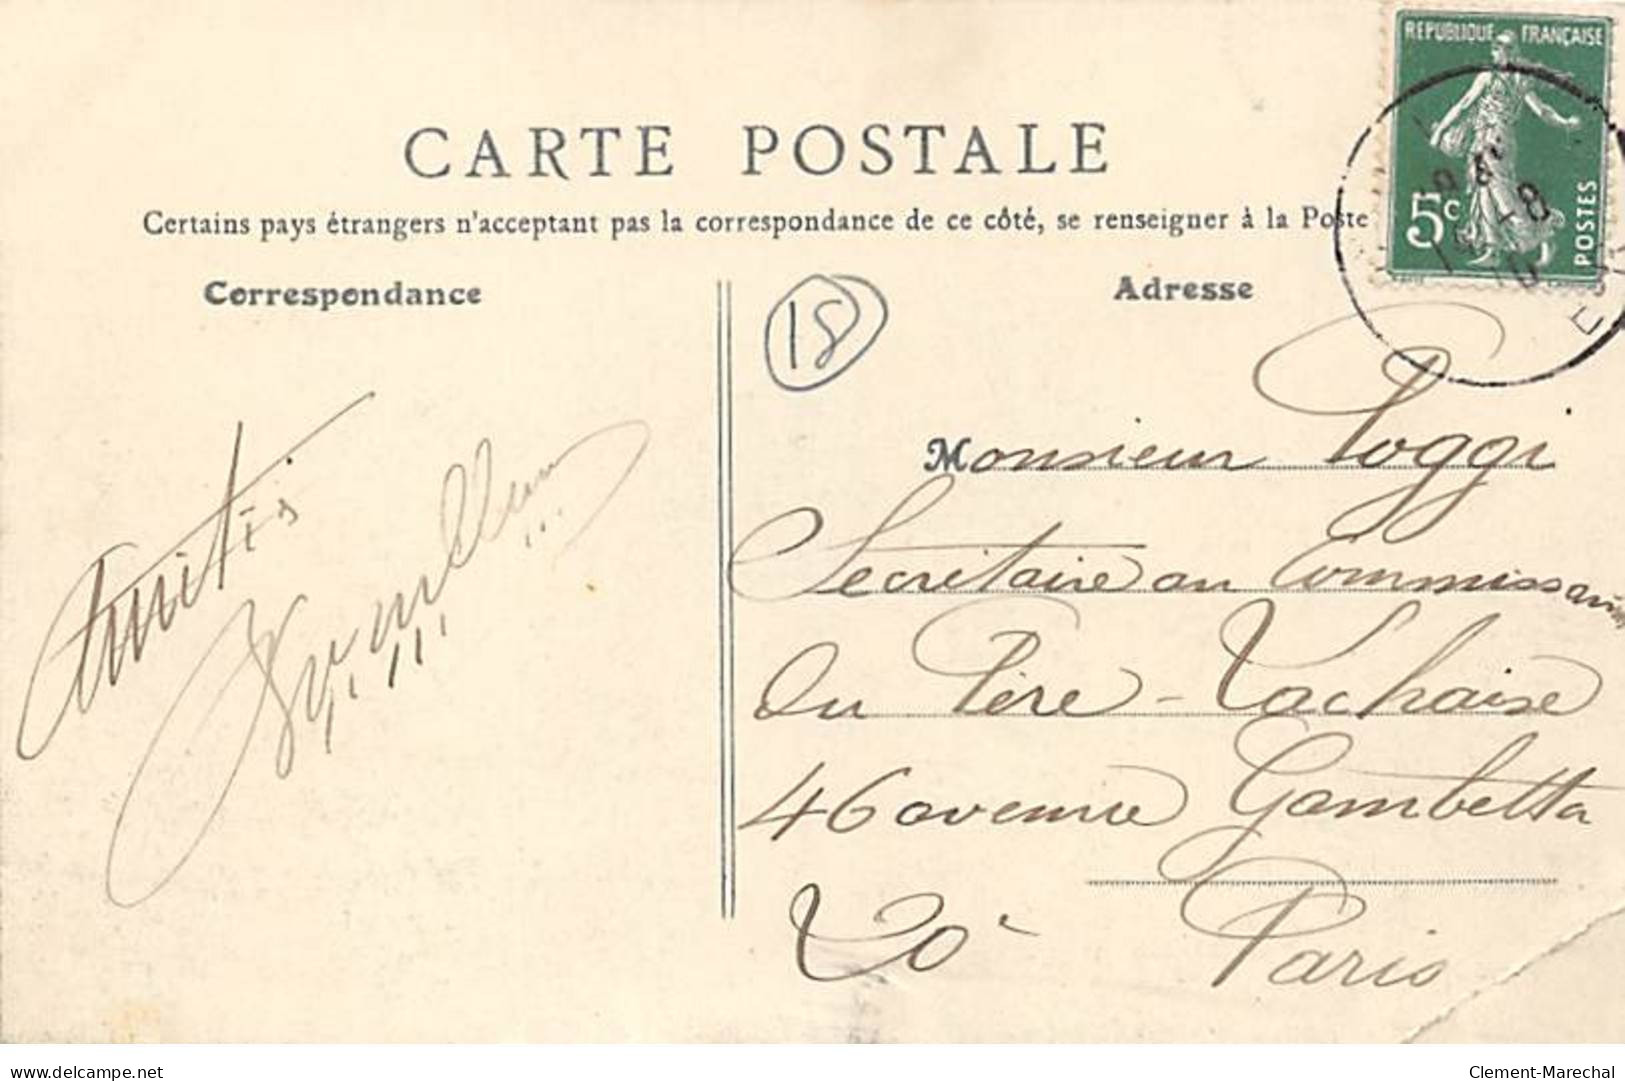 REPUBLIQUE FRANÇAISE
5c
POSTES
CARTE POSTALE
Certains pays étrangers n'acceptent pas la correspondance de ce côté, se renseigner à la Poste
Correspondance
Adresse
18
Amitiés
Monsieur Poggi
Secrétaire au Commissariat
Du Père-Lachaise
46 avenue Gambetta
20e
Paris
www.delcampe.net
Clement-Marechal